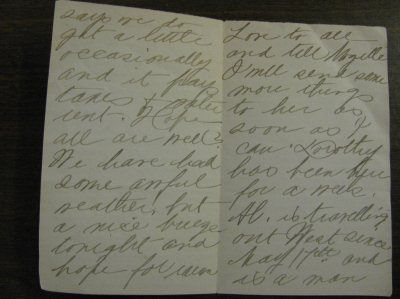 says we do
get a little
occasionally
and it pays
taxes & water
rent. Hope
all are well?
We have had
some awful
weather, but
a nice breeze
tonight and
hope for
Love to all
and tell
I'll send some
more things
to her as
soon as I
can. Dorothy
has been here
for a week.
Al. is travelling
out West since
May 17th and
is a man